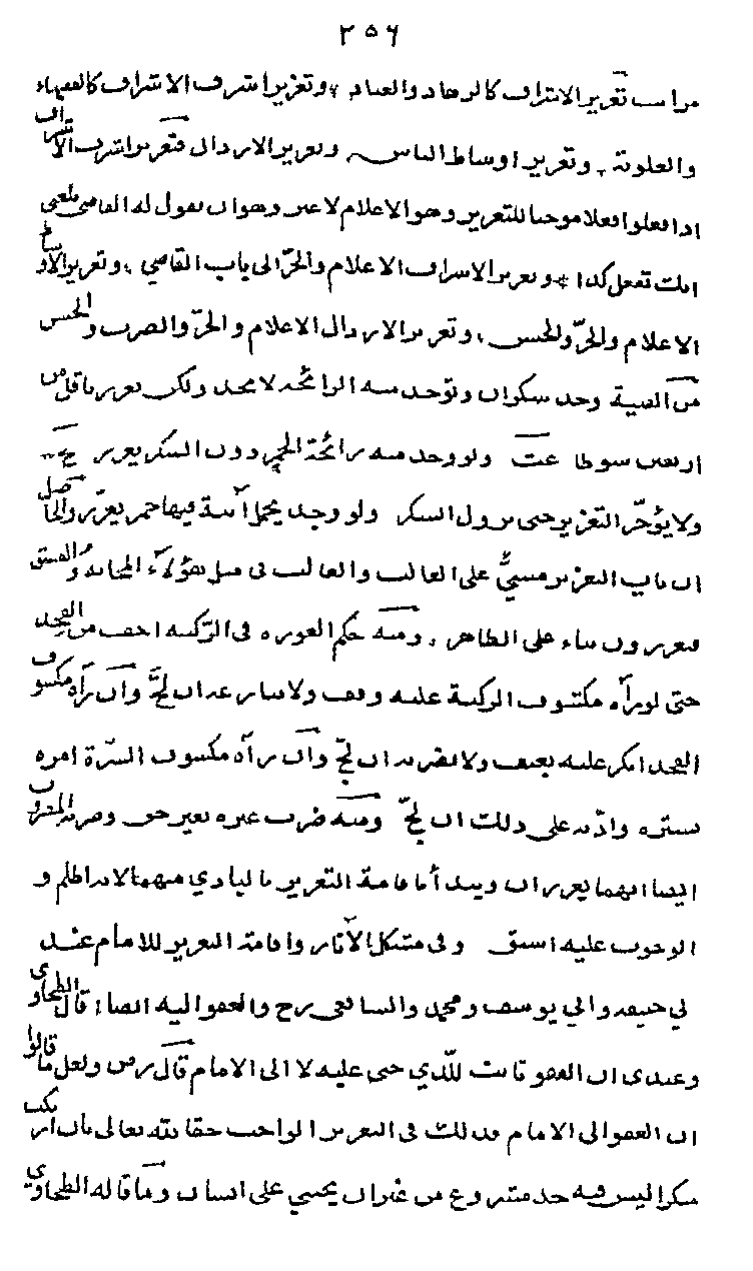 ٢٥٦
مراتب تعزير الاشراف كالزهاد والعباد وتعزير اشرف الاشراف كالفقهاء
والعلوية وتعزير اوساط الناس وتعزير الارذال فتعزير اشرف الاشراف
اذا فعلوا فعلا موجبا للتعزير وهو الاعلام لا غير وهو ان يقول له القاضي بلغني
انك تفعل كذا وتعزير الاشراف الاعلام والجرّ الى باب القاضي وتعزير الاوساط
الاعلام والجرّ والحبس وتعزير الارذال الاعلام والجرّ والضرب والحبس
من القنية وجد سكران وتوجد منه الرائحة لا يحد ولكن يعزر ما قل من
اربعين سوطا عت ولو وجد منه رائحة الخمر دون السكر يعزر
ولا يؤخّر التعزير حتى يزول السكر ولو وجد يحمل آنية فيها خمر يعزّر والحاصل
ان باب التعزير مبنيٌّ على الغالب والغالب في مثل هؤلاء المجانة والفسق
فيعزرون بناء على الظاهر ومنه حكم العورة في الركبة اخف من الفخذ
حتى لو رآه مكشوف الركبة عليه برفق ولا ينازعه ان لجّ وان رآه مكشوف
الفخذ انكر عليه بعنف ولا يضربه ان لجّ وان رآه مكشوف السرّة امره
بستره وادّبه على ذلك ان لجّ ومنه ضرب غيره بغير حق وضربه المضروب
ايضا انهما يعزران ويبدأ باقامة التعزير بالبادي منهما لانه اظلم و
الوجوب عليه اسبق وفي مشكل الآثار واقامة التعزير للامام عند
ابي حنيفة وابي يوسف ومحمد والشافعي رح والعفو اليه ايضا قال الطحاوي
وعندي ان العفو ثابت للّذي جنى عليه لا الى الامام قال رض ولعل ما قالوا
ان العفو الى الامام فذلك في التعزير الواجب حقا لله تعالى بان ارتكب
منكرا ليس فيه حد مشروع من غير ان يجني على انسان وما قاله الطحاوي